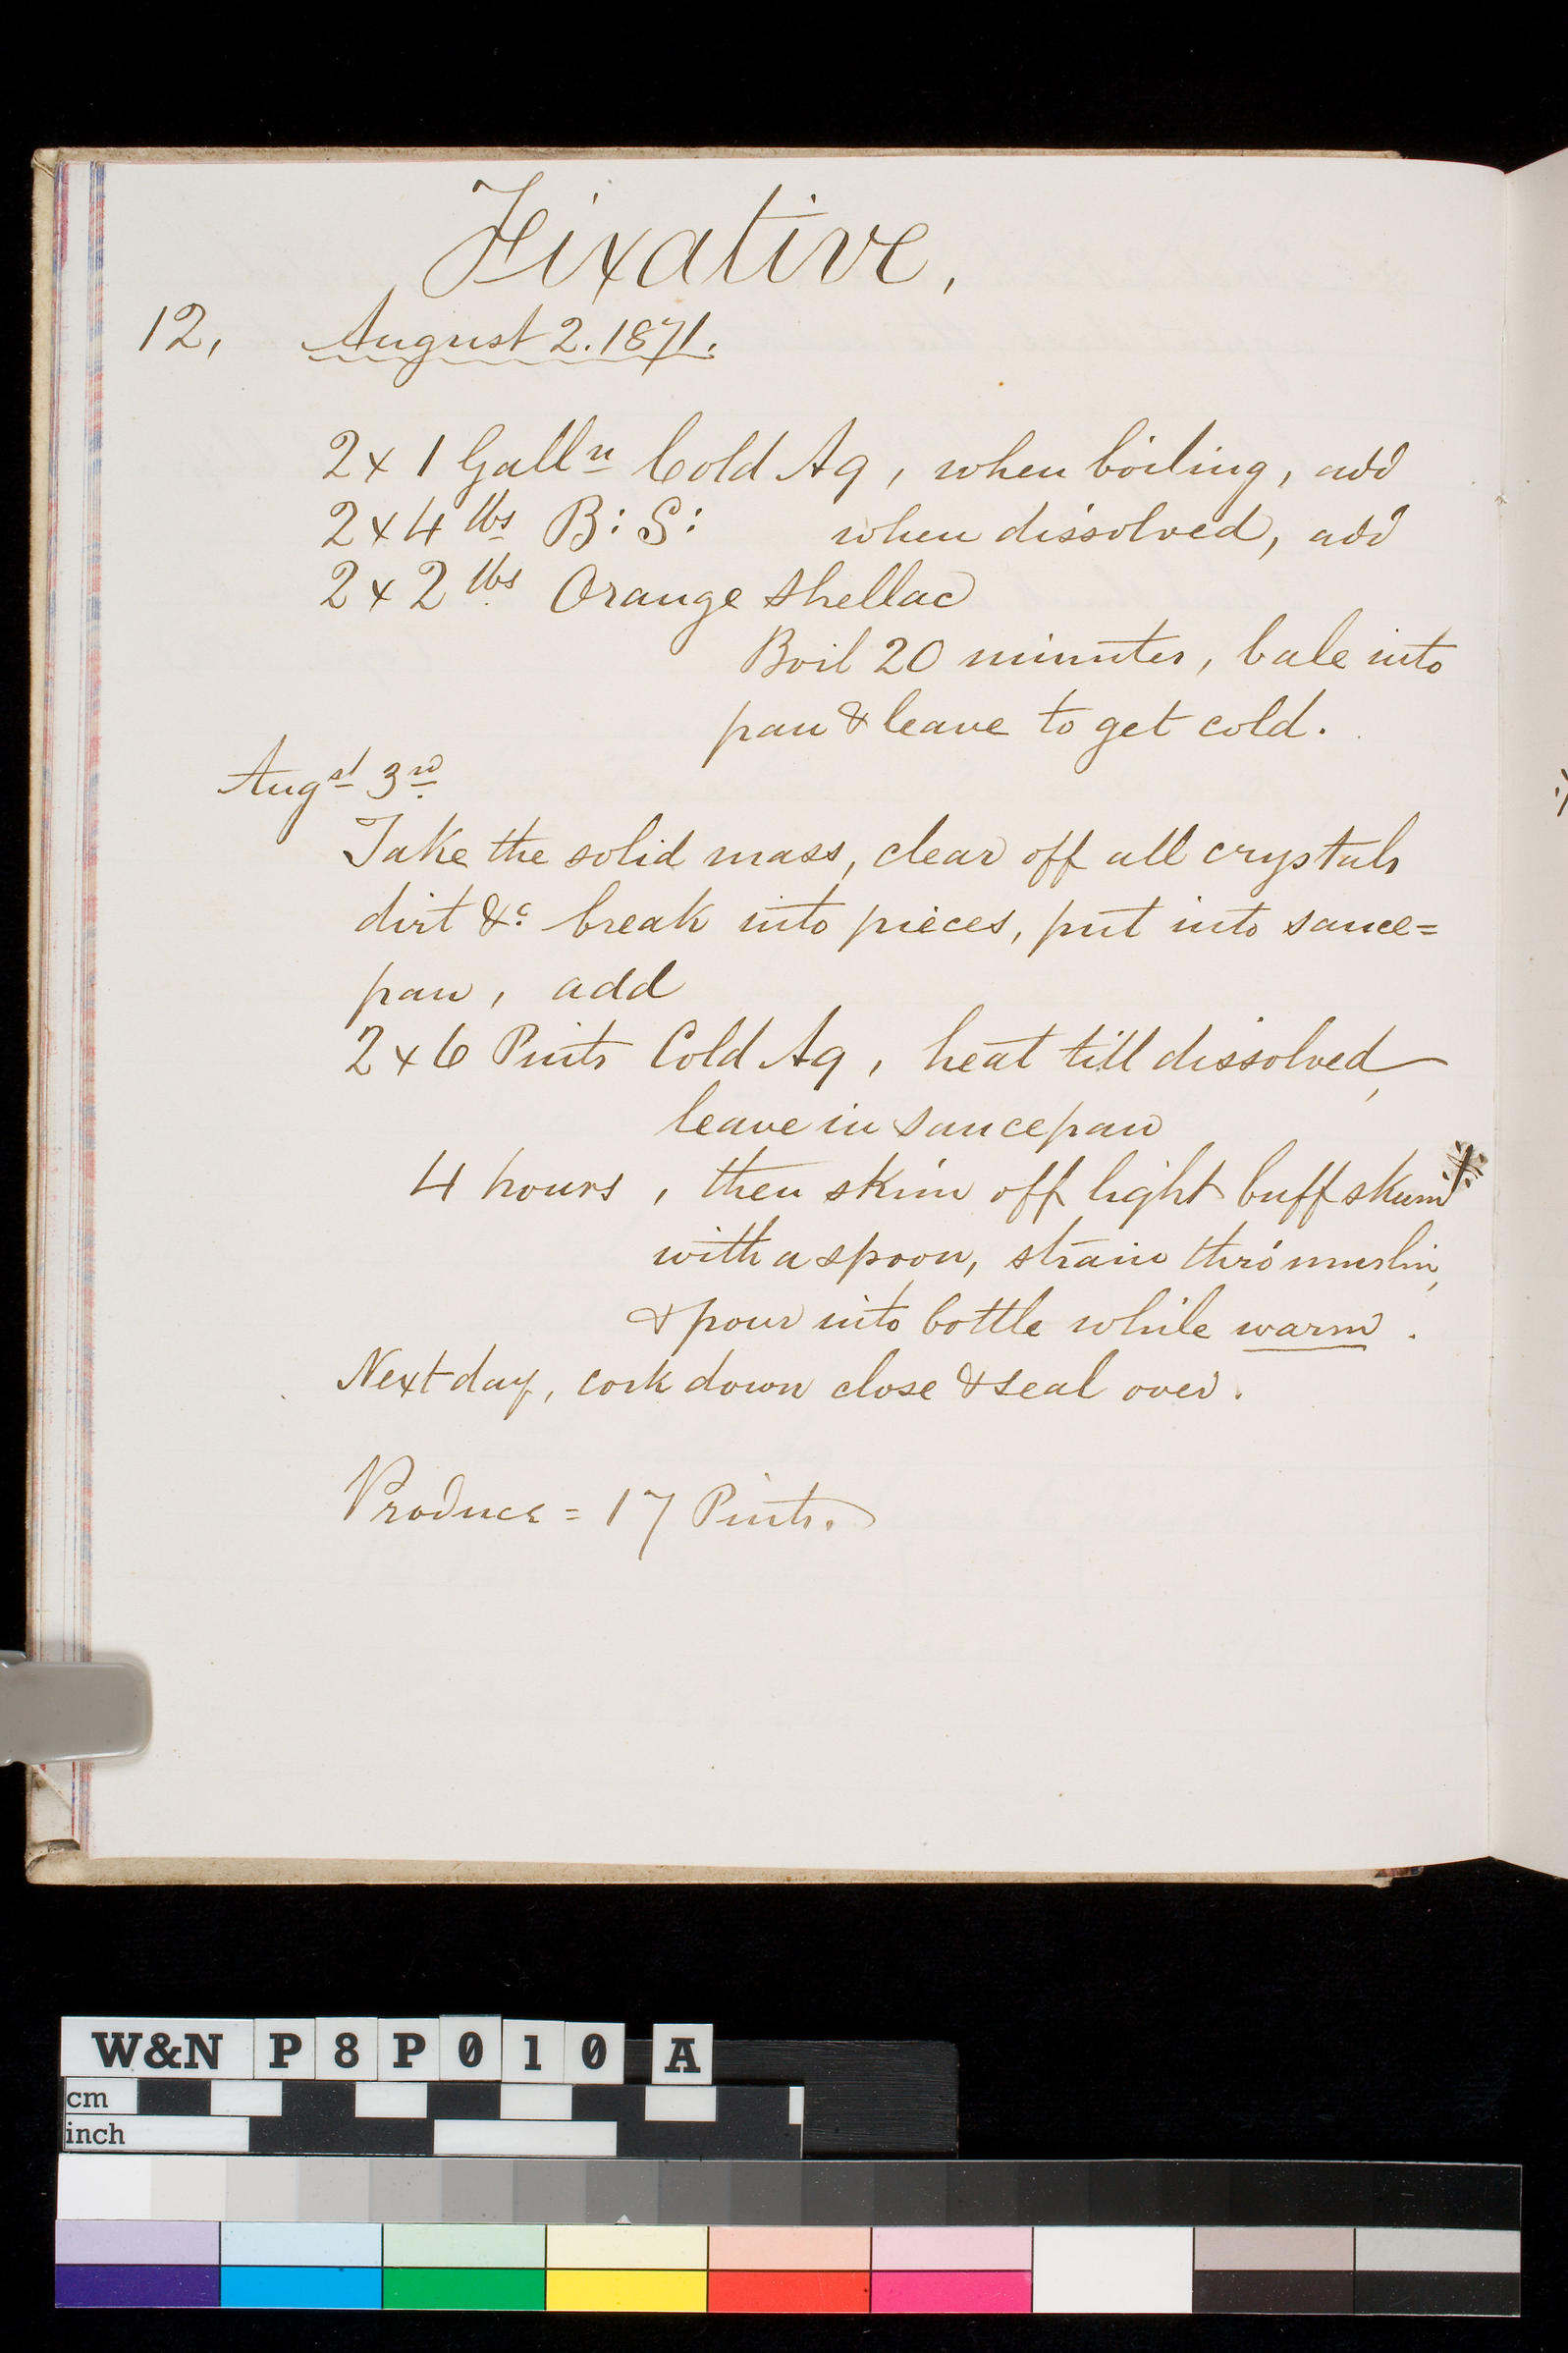 Fixative,
12, August 2. 1871.
2 x 1 Galln Cold Aq, when boiling, add
2 x 4 lbs B: S: when dissolved, add
2 x 2 lbs Orange Shellac
Boil 20 minutes, bale into
pan & leave to get cold.
Augst 3rd
Take the solid mass, clear off all crystals
dirt &c break into pieces, put into sauce=
pan, add
2 x 6 Pints Cold Aq, heat till dissolved,
leave in saucepan
4 hours, then skim off light buff skum
with a spoon, strain thro' muslin,
& pour into bottle while warm.
Next day, cork down close & seal over.
Produce = 17 Pints.
W&N P8P010 A
cm
inch